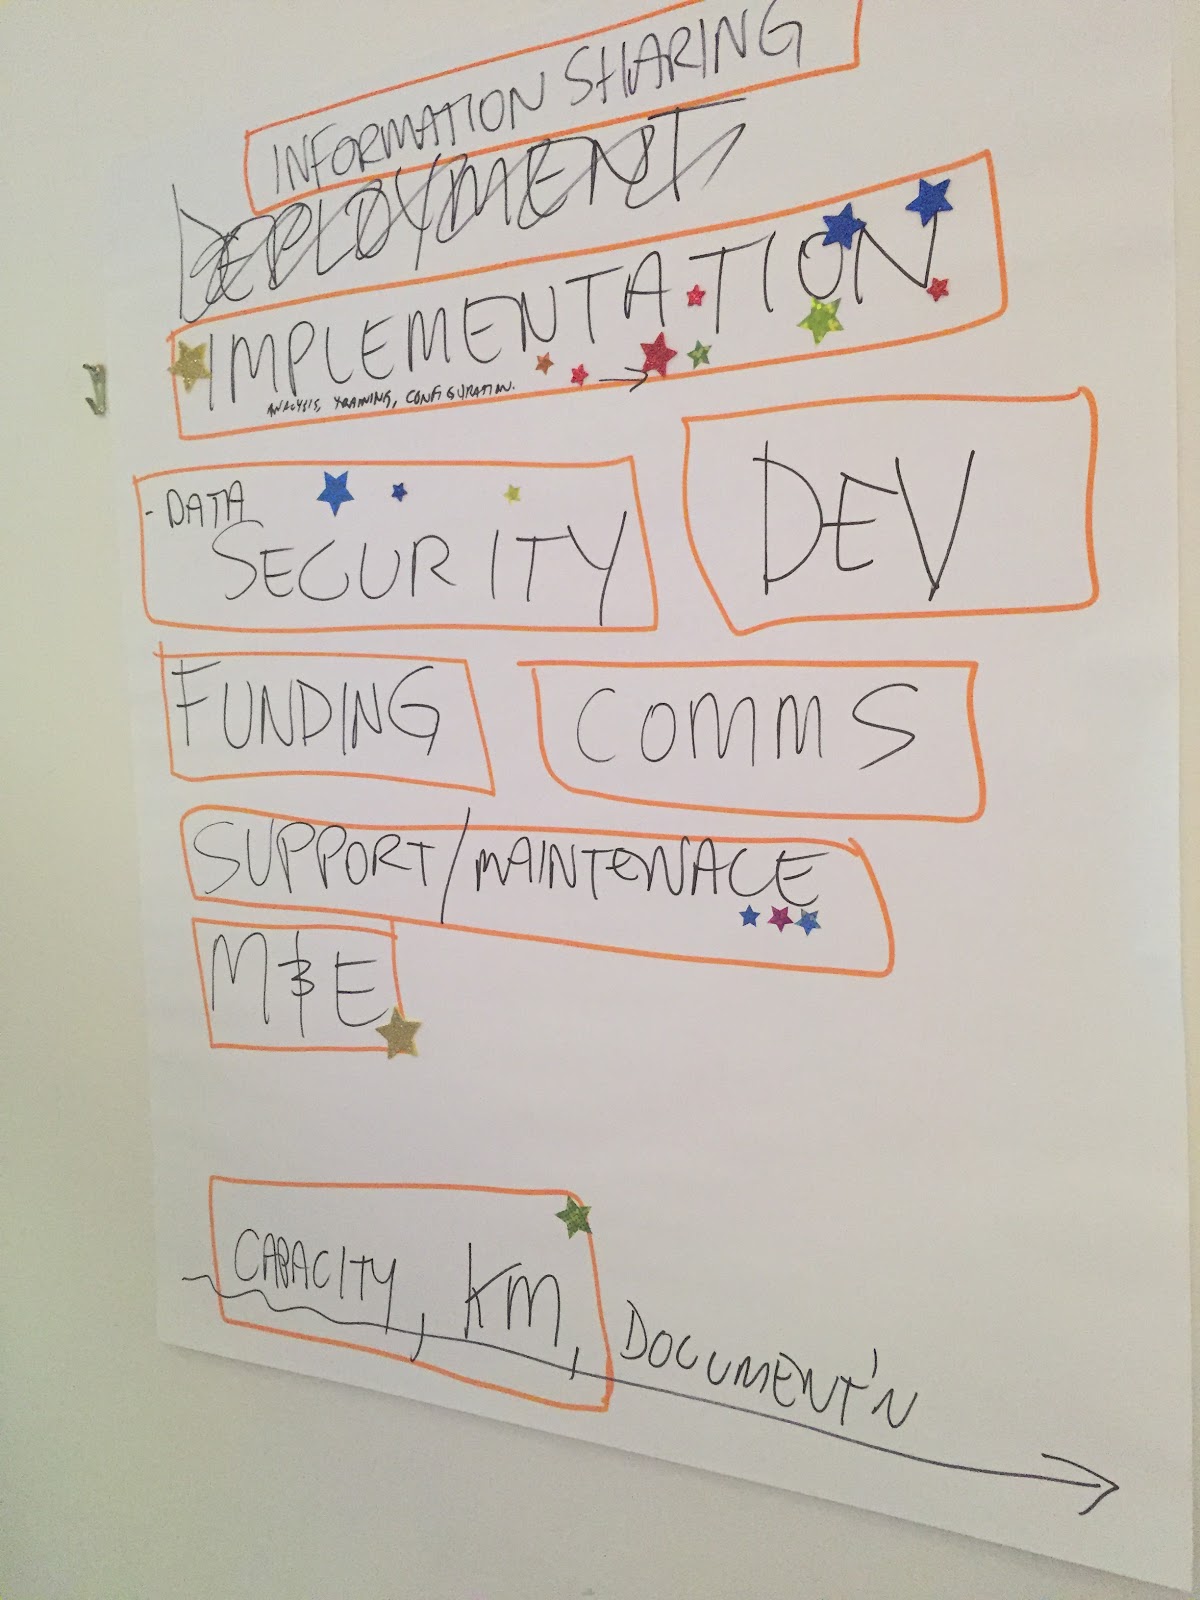 INFORMATION SHARING
DEPLOYMENT
IMPLEMENTATION
ANALYSIS, TRAINING, CONFIGURATION.
- DATA
SECURITY
DEV
FUNDING
COMMS
SUPPORT/MAINTENACE
M&E
CAPACITY, KM, DOCUMENT'N